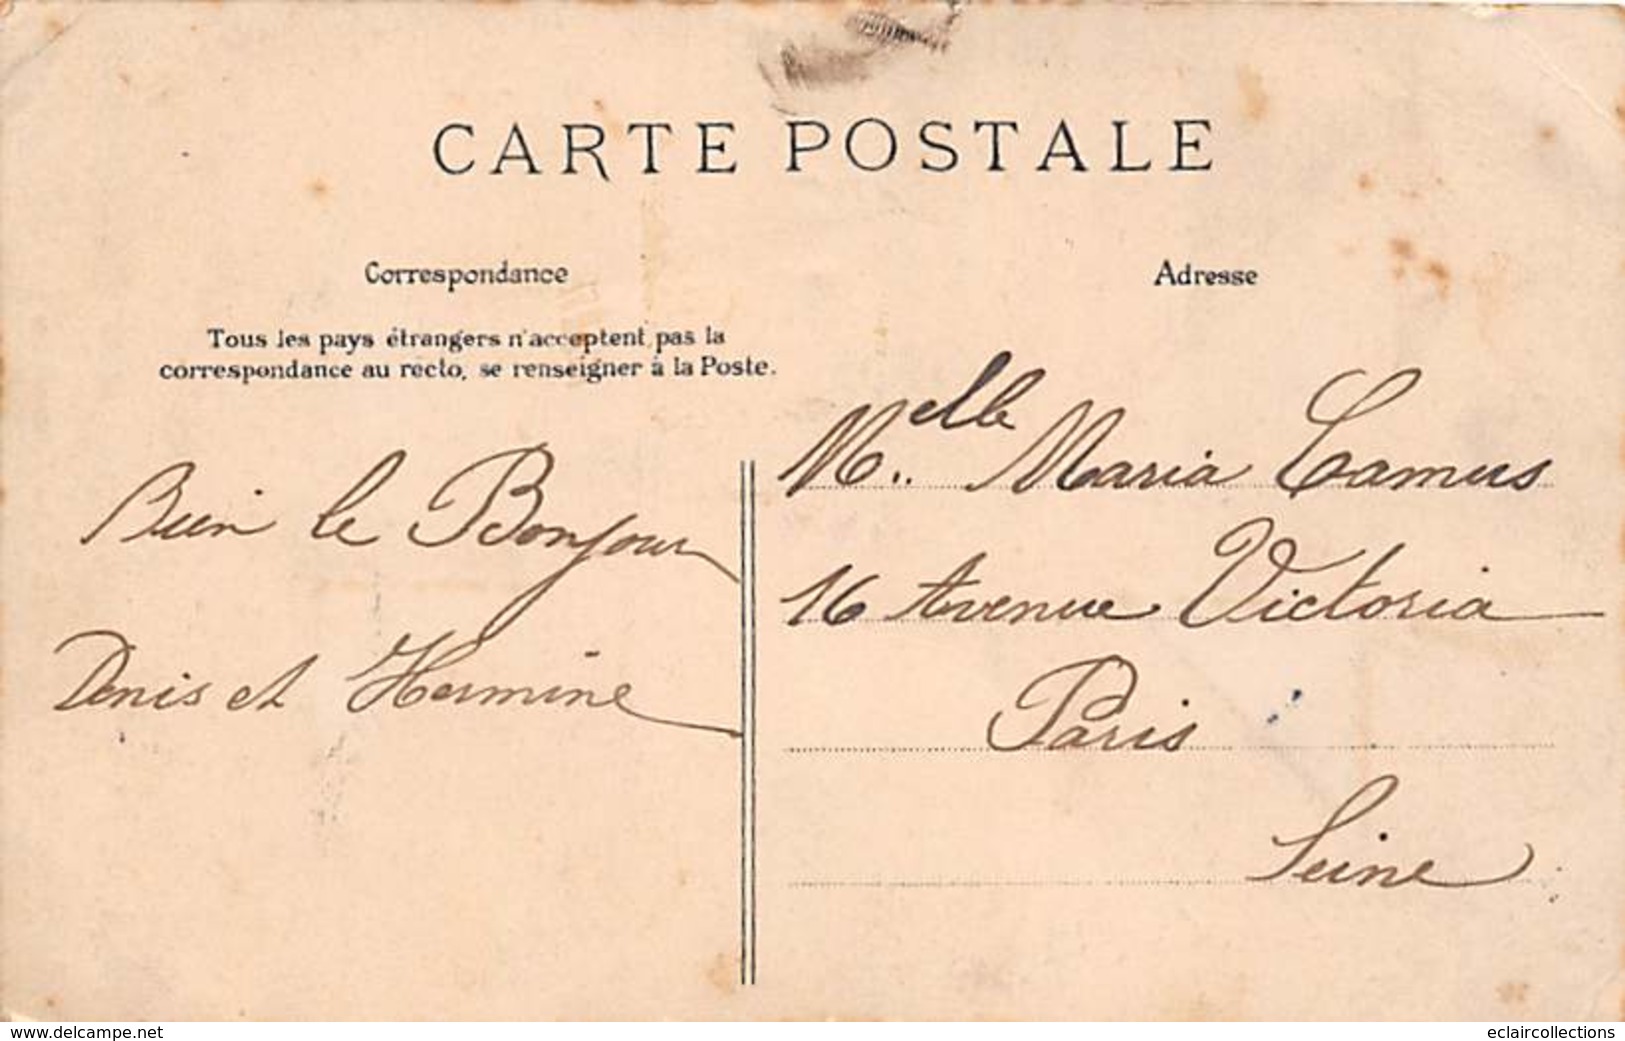 CARTE POSTALE
Correspondance
Tous les pays étrangers n'acceptent pas la
correspondance au recto, se renseigner à la Poste.
Bien le Bonjour
Denis et Hermine
Adresse
Melle Maria Camus
16 Avenue Victoria
Paris
Seine
www.delcampe.net
eclaircollections